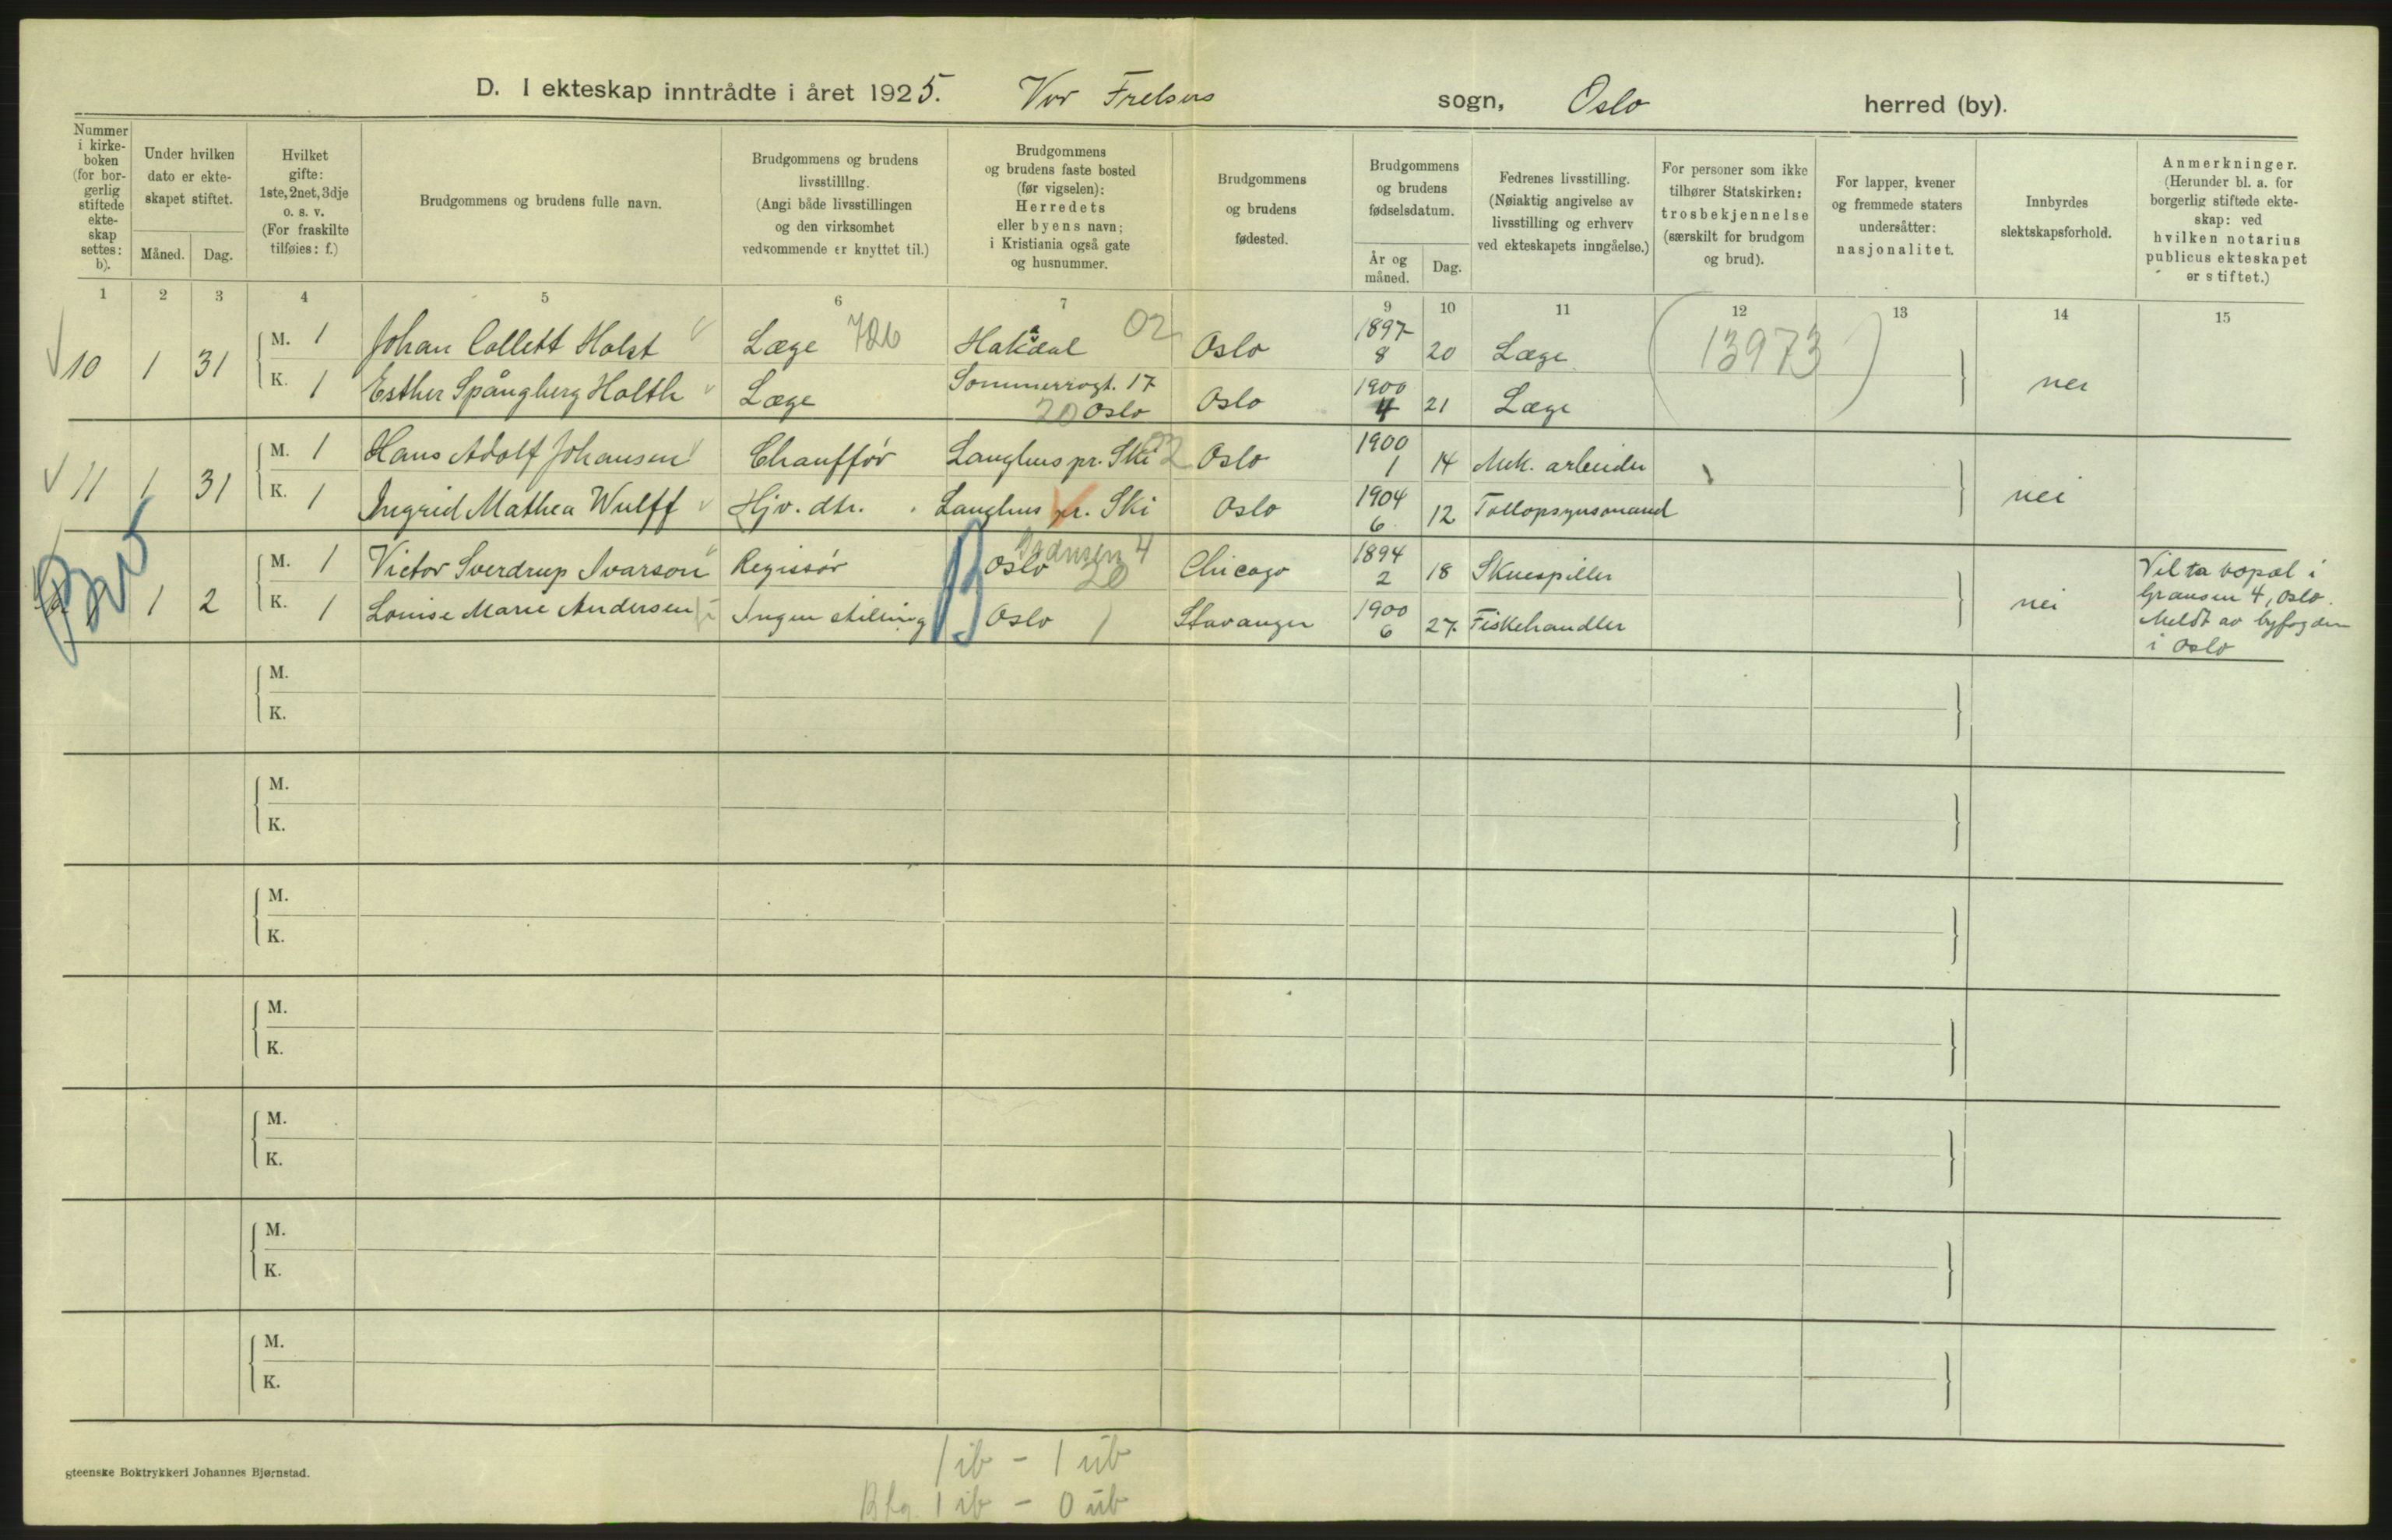 D. I ekteskap inntrådte i året 1925. Vor Frelsers sogn, Oslo herred (by).
Nummer i kirkeboken (for borgerlig stiftede ekteskap settes: b).
Under hvilken dato er ekteskapet stiftet.
Måned. Dag.
Hvilket gifte: 1ste, 2net, 3dje o. s. v. (For fraskilte tilføies: f.)
Brudgommens og brudens fulle navn.
Brudgommens og brudens livsstilling. (Angi både livsstillingen og den virksomhet vedkommende er knyttet til.)
Brudgommens og brudens faste bosted (før vigselen): Herredets eller byens navn; i Kristiania også gate og husnummer.
Brudgommens og brudens fødested.
Brudgommens og brudens fødselsdatum.
År og måned. Dag.
Fedrenes livsstilling. (Nøiaktig angivelse av livsstilling og erhverv ved ekteskapets inngåelse.)
For personer som ikke tilhører Statskirken: trosbekjennelse (særskilt for brudgom og brud).
For lapper, kvener og fremmede staters undersåtter: nasjonalitet.
Innbyrdes slektskapsforhold.
Anmerkninger. (Herunder bl. a. for borgerlig stiftede ekteskap: ved hvilken notarius publicus ekteskapet er stiftet.)
1 2 3 4 5 6 7 9 10 11 12 13 14 15
10 1 31 M. 1 Johan Collett Holst Læge 726 Hakadal 02 Oslo 1897 8 20 Læge (13973) nei
K. 1 Esther Spångberg Holth Læge Sommerrogt. 17 20 Oslo Oslo 1900 4 21 Læge
11 1 31 M. 1 Hans Adolf Johansen Chauffør Langhus pr. Ski 02 Oslo 1900 1 14 Mek. arbeider nei
K. 1 Ingrid Mathea Wulff Hjv. dtr. Langhus pr. Ski Oslo 1904 6 12 Tollopsynsmand
1 2 M. 1 Victor Sverdrup Ivarson Regissør Grænsen 4 Oslo 20 Chicago 1894 2 18 Skuespiller nei
K. 1 Louise Marie Andersen Ingen stilling Oslo 1 Stavanger 1900 6 27 Fiskehandler
Vil ta bopæl i
Grænsen 4, Oslo.
Meldt av byfogden
i Oslo
M.
K.
M.
K.
M.
K.
M.
K.
M.
K.
M.
K.
M.
K.
gteenske Boktrykkeri Johannes Bjørnstad.
1 ib - 1 ub
Bfg. 1 ib - 0 ub